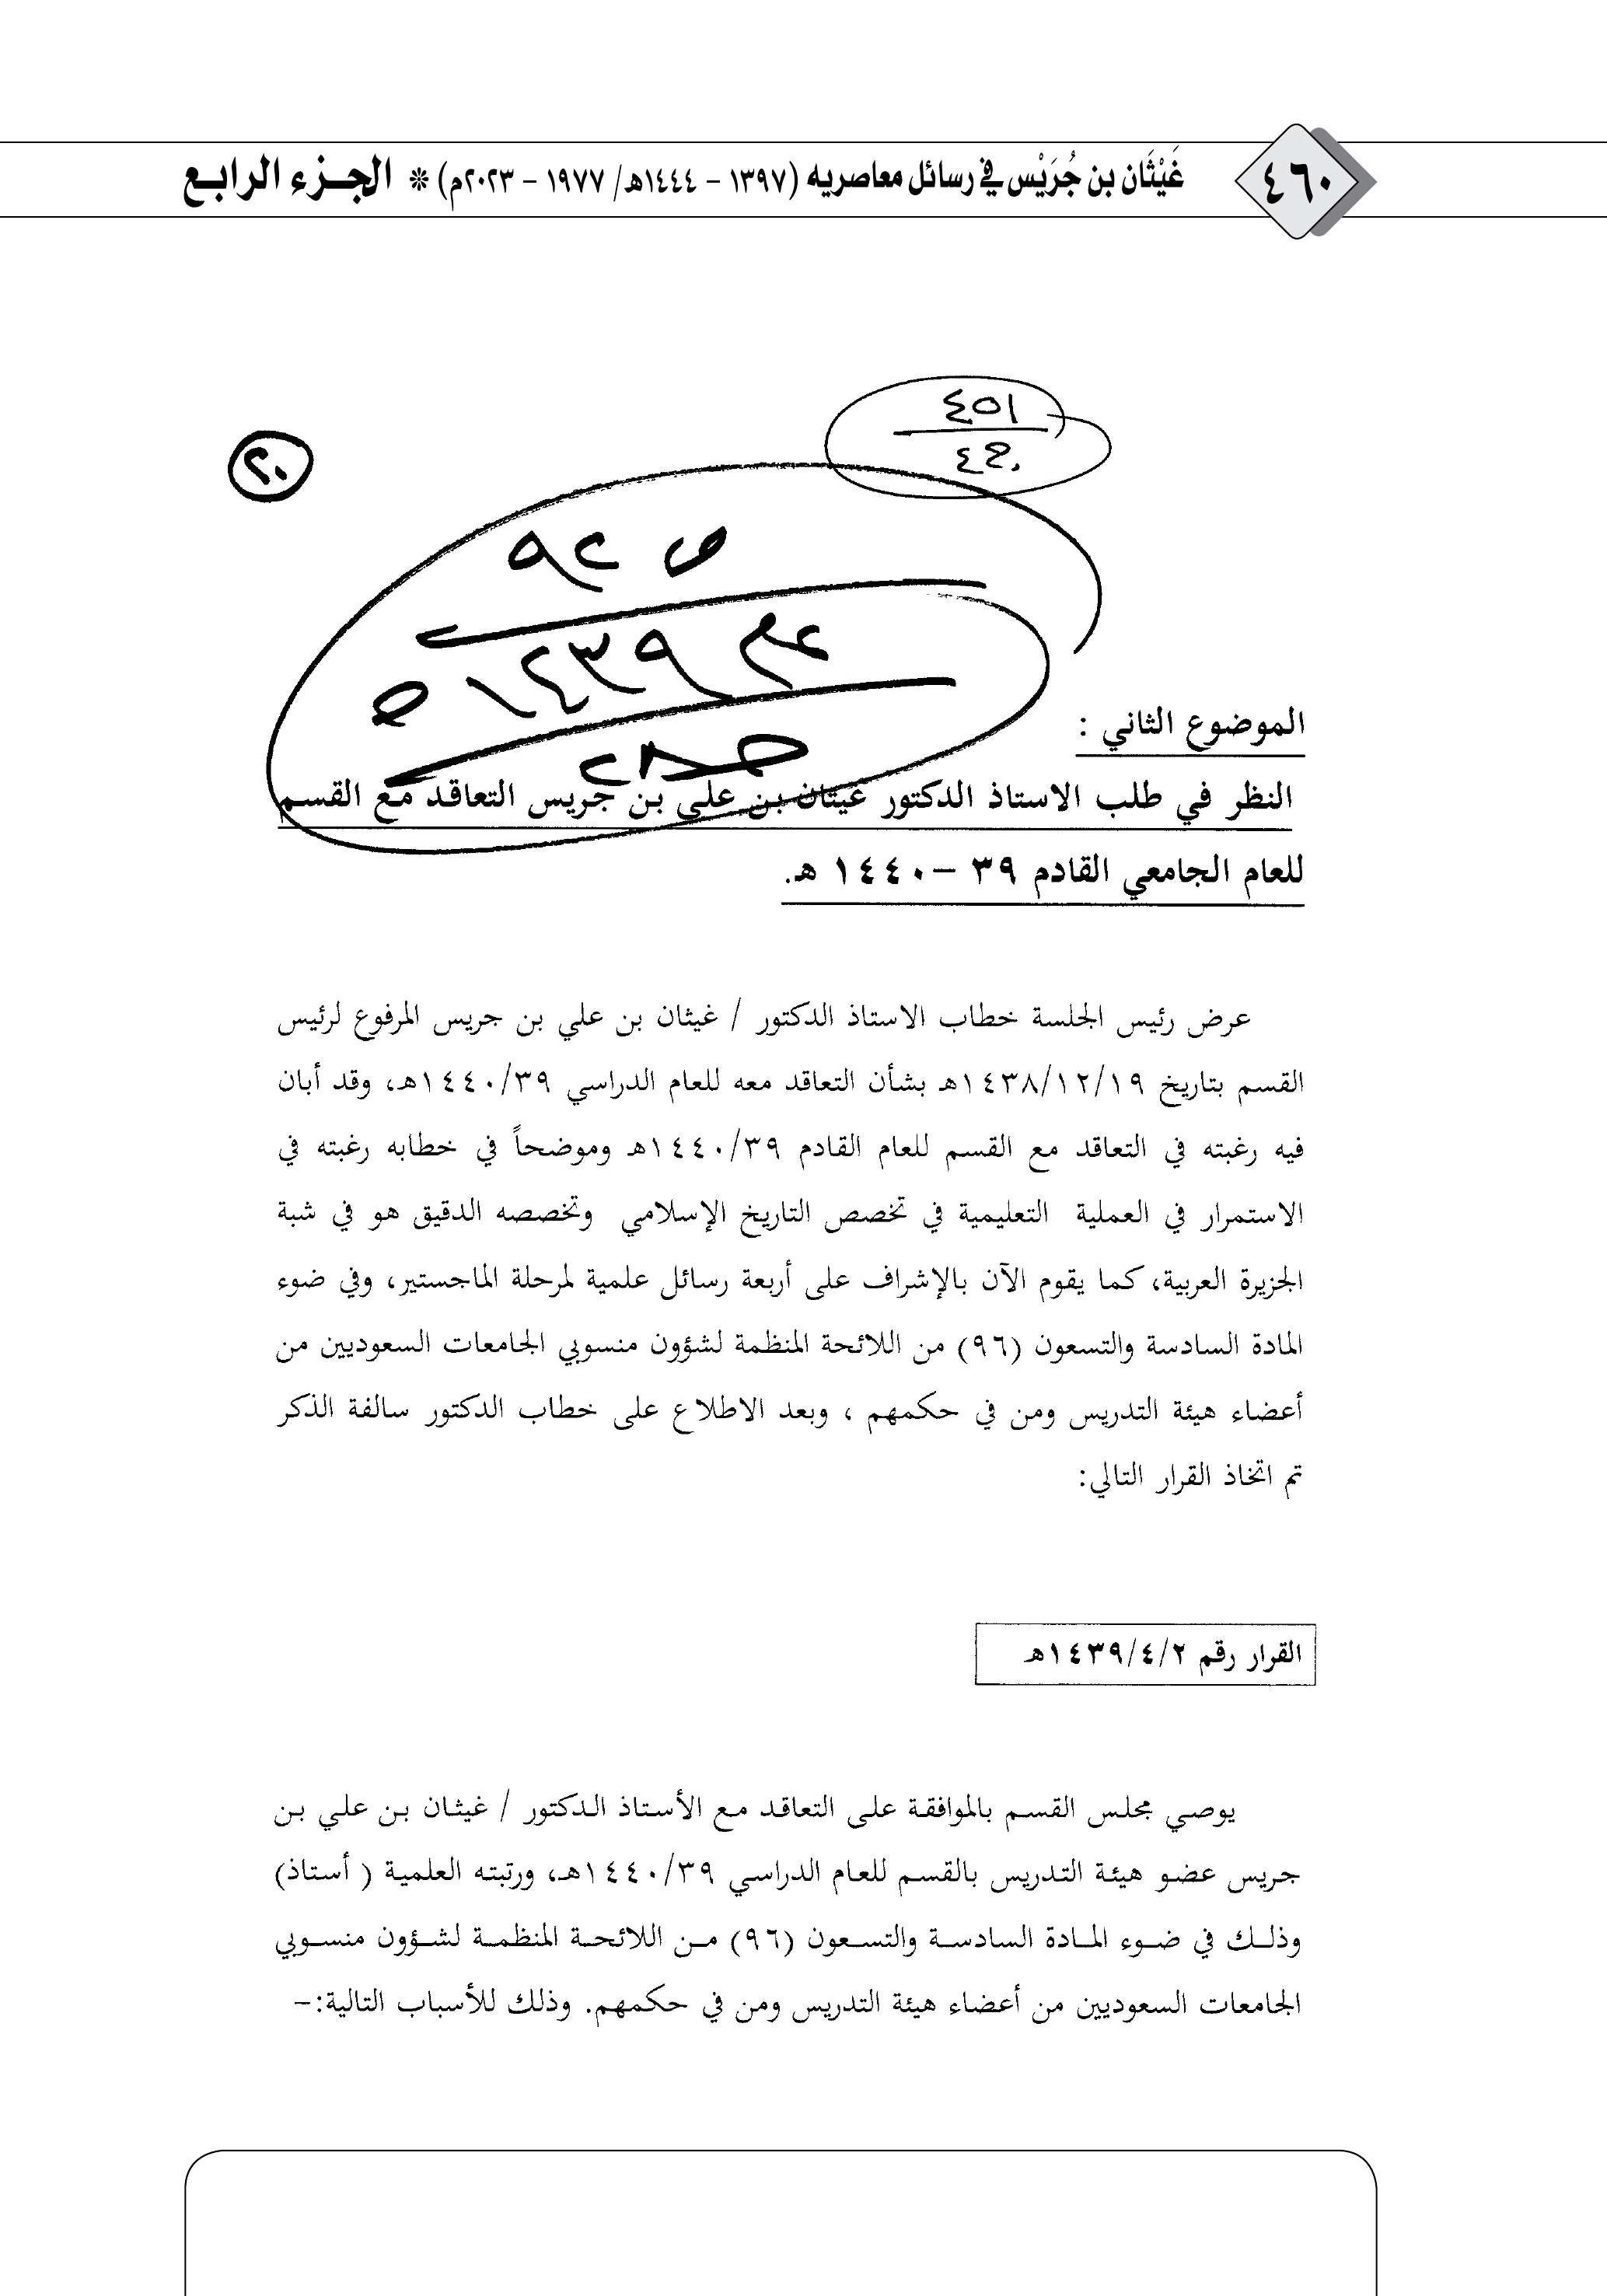 ٤٦٠
غَيْثَان بن جُرَيْس في رسائل معاصريه (١٣٩٧ - ١٤٤٤هـ/ ١٩٧٧ - ٢٠٢٣م) * الجزء الرابع
٤٥١
٢٠
الموضوع الثاني :
النظر في طلب الاستاذ الدكتور غيثان بن علي بن جريس التعاقد مع القسم
للعام الجامعي القادم ٣٩ – ١٤٤٠ هـ.
عرض رئيس الجلسة خطاب الاستاذ الدكتور / غيثان بن علي بن جريس المرفوع لرئيس
القسم بتاريخ ١٤٣٨/١٢/١٩هـ بشأن التعاقد معه للعام الدراسي ١٤٤٠/٣٩هـ، وقد أبان
فيه رغبته في التعاقد مع القسم للعام القادم ١٤٤٠/٣٩هـ وموضحاً في خطابه رغبته في
الاستمرار في العملية التعليمية في تخصص التاريخ الإسلامي وتخصصه الدقيق هو في شبة
الجزيرة العربية، كما يقوم الآن بالإشراف على أربعة رسائل علمية لمرحلة الماجستير، وفي ضوء
المادة السادسة والتسعون (٩٦) من اللائحة المنظمة لشؤون منسوبي الجامعات السعوديين من
أعضاء هيئة التدريس ومن في حكمهم ، وبعد الاطلاع على خطاب الدكتور سالفة الذكر
تم اتخاذ القرار التالي:
القرار رقم ١٤٣٩/٤/٢هـ
يوصي مجلس القسم بالموافقة على التعاقد مع الأستاذ الدكتور / غيثان بن علي بن
جريس عضو هيئة التدريس بالقسم للعام الدراسي ١٤٤٠/٣٩هـ، ورتبته العلمية ( أستاذ)
وذلك في ضوء المادة السادسة والتسعون (٩٦) من اللائحة المنظمة لشؤون منسوبي
الجامعات السعوديين من أعضاء هيئة التدريس ومن في حكمهم. وذلك للأسباب التالية:-